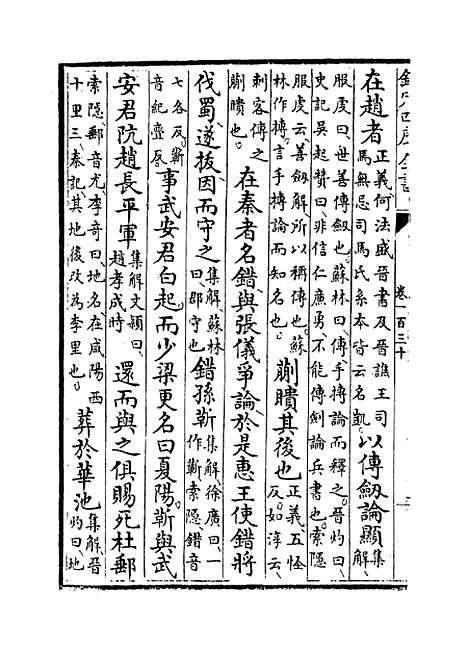 欽定四庫全書
卷一百三十
在趙者正義何法盛晉書及晉譙王司馬無忌司馬氏系本皆云名凱以傳劔論顯集解
服虔曰世善傳劔也蘇林曰傳手搏論而釋之晉灼曰史記吳起贊曰非信仁廉勇不能傳劍論兵書也索隱
服虔云善劔解所以稱傳也蘇林作搏言手搏論而知名也蒯聵其後也正義五怪反如淳云
刺客傳之蒯聵也在秦者名錯與張儀爭論於是惠王使錯將
伐蜀遂拔因而守之集解蘇林曰郡守也錯孫靳集解徐廣曰一作蘄索隱錯音
七各反靳音紀亹原事武安君白起而少梁更名曰夏陽靳與武
安君阬趙長平軍集解文頴曰趙孝成時還而與之俱賜死杜郵
索隱郵音尤李奇曰地名在咸陽西十里三秦記其地後改為李里也葬於華池集解晉灼曰地